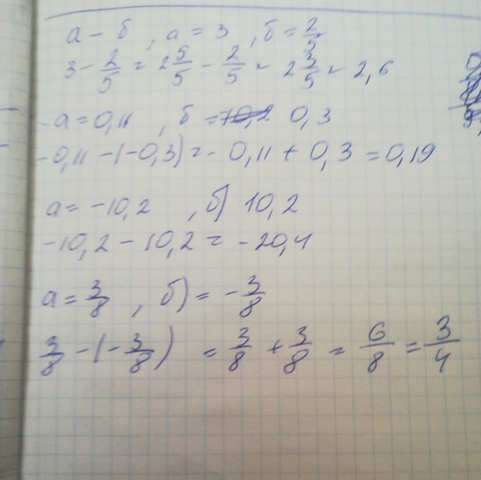 а - б , а = 3 , б = 2/5
3 - 2/5 = 2 5/5 - 2/5 = 2 3/5 = 2,6
-а = 0,11 , б = 0,3
-0,11 - (-0,3) = - 0,11 + 0,3 = 0,19
а = -10,2 , б) 10,2
-10,2 - 10,2 = -20,4
а = 3/8 , б) = - 3/8
3/8 - (- 3/8) = 3/8 + 3/8 = 6/8 = 3/4